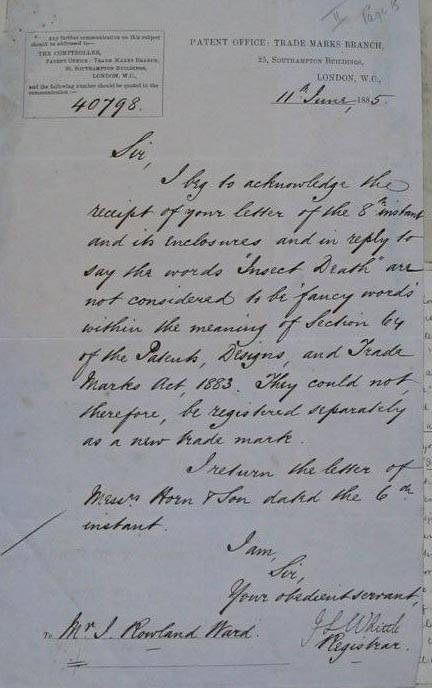 II Page 15
Any further communication on this subject
should be addressed to—
THE COMPTROLLER,
PATENT OFFICE: TRADE MARKS BRANCH,
25, SOUTHAMPTON BUILDINGS,
LONDON, W.C.,
and the following number should be quoted in the
communication—
40798.
PATENT OFFICE: TRADE MARKS BRANCH,
25, SOUTHAMPTON BUILDINGS,
LONDON, W.C.,
11th June, 1885.
Sir,
I beg to acknowledge the
receipt of your letter of the 8th instant
and its enclosures and in reply to
say the words "Insect Death" are
not considered to be "fancy words"
within the meaning of Section 64
of the Patents, Designs, and Trade
Marks Act, 1883. They could not,
therefore, be registered separately
as a new trade mark.
I return the letter of
Messrs Horn & Son dated the 6th
instant.
I am,
Sir,
Your obedient servant,
Whittle
Registrar.
To Mr J. Rowland Ward.